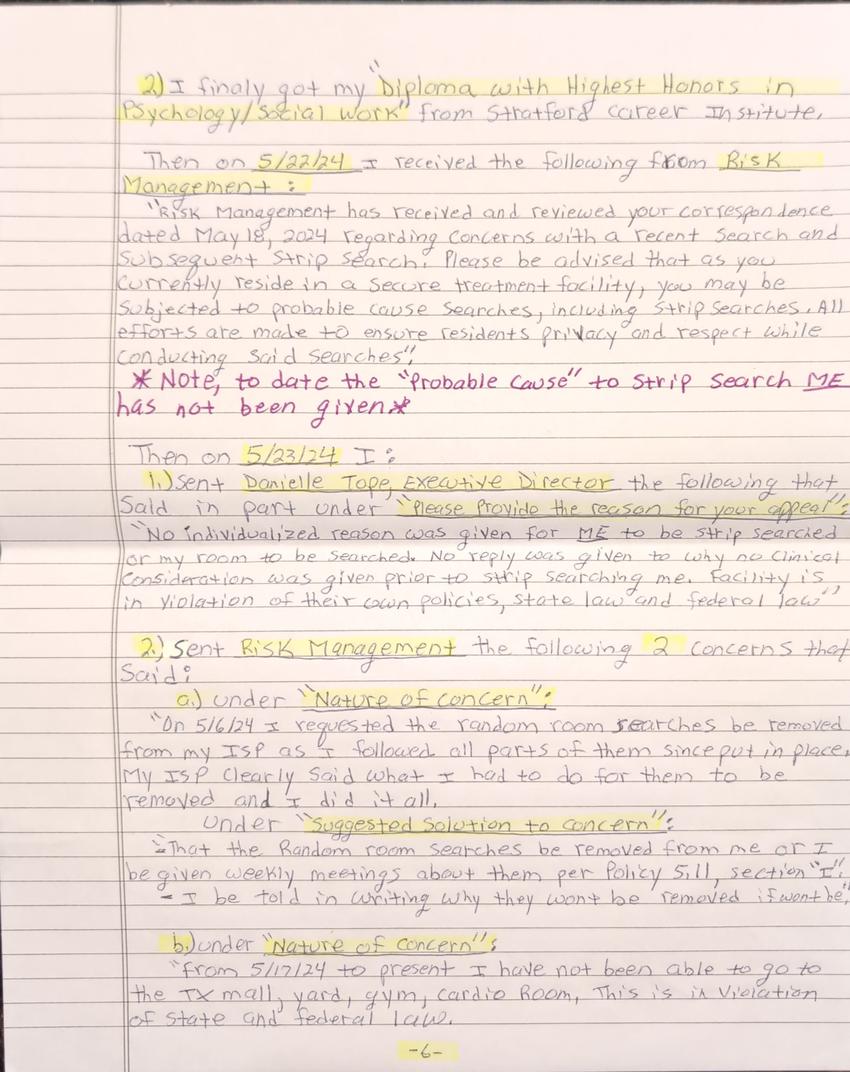 2) I finaly got my "Diploma with Highest Honors in
Psychology/Social Work" from Stratford Career Institute.
Then on 5/22/24 I received the following from Risk
Management:
"Risk Management has received and reviewed your correspondence
dated May 18, 2024 regarding concerns with a recent search and
subsequent strip search. Please be advised that as you
currently reside in a secure treatment facility, you may be
subjected to probable cause searches, including strip searches. All
efforts are made to ensure residents privacy and respect while
conducting said searches".
* Note, to date the "Probable cause" to strip search ME
has not been given*
Then on 5/23/24 I:
1.) Sent Danielle Tope, Executive Director the following that
said in part under "Please Provide the reason for your appeal":
"No individualized reason was given for ME to be strip searched
or my room to be searched. No reply was given to why no Clinical
Consideration was given prior to strip searching me. Facility is
in violation of their own policies, state law and federal law"
2.) Sent Risk Management the following 2 concerns that
said:
a.) under "Nature of concern":
"On 5/6/24 I requested the random room searches be removed
from my ISP as I followed all parts of them since put in place.
My ISP clearly said what I had to do for them to be
removed and I did it all.
Under "Suggested Solution to concern":
"-That the Random room searches be removed from me or I
be given weekly meetings about them per Policy 5.11, section "I".
- I be told in writing why they wont be removed if wont be"
b.) under "Nature of concern":
"From 5/17/24 to present I have not been able to go to
the TX mall, yard, gym, cardio Room, This is in Violation
of state and federal law.
-6-